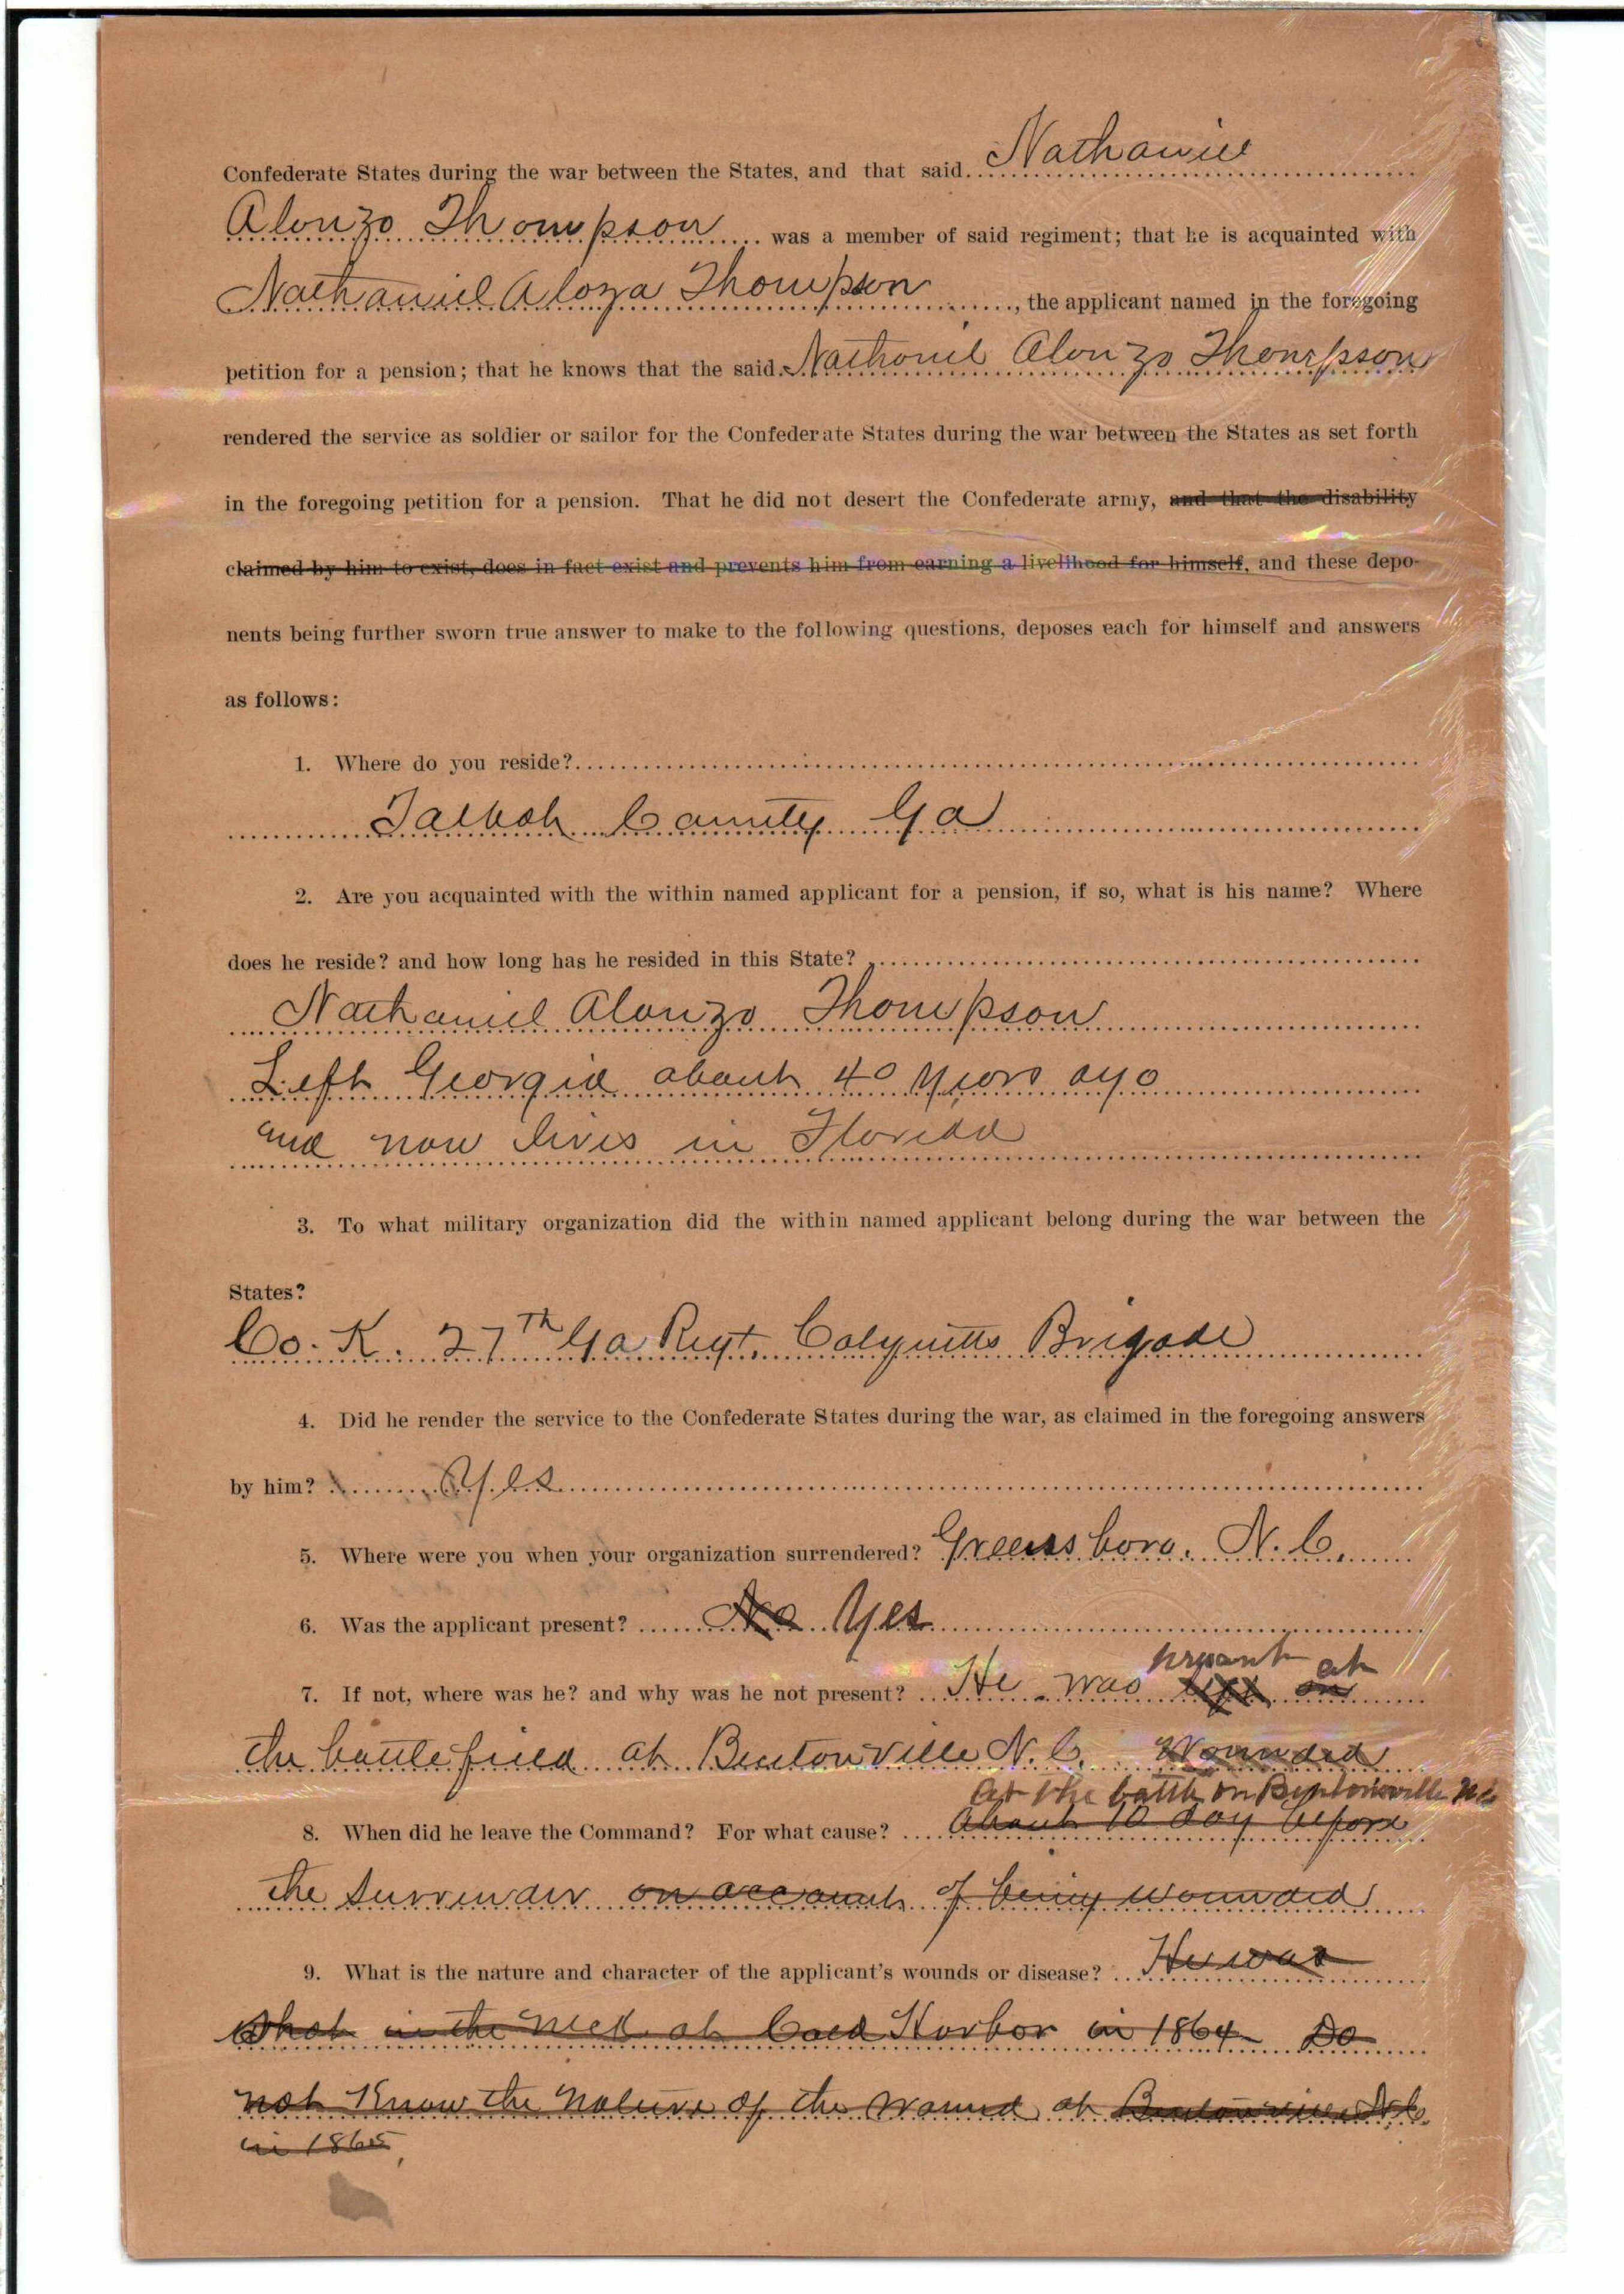 Confederate States during the war between the States, and that said Nathaniel
Alonzo Thompson was a member of said regiment; that he is acquainted with
Nathaniel Aloza Thompson, the applicant named in the foregoing
petition for a pension; that he knows that the said Nathaniel Alonzo Thompson
rendered the service as soldier or sailor for the Confederate States during the war between the States as set forth
in the foregoing petition for a pension. That he did not desert the Confederate army, and that the disability
claimed by him to exist, does in fact exist and prevents him from earning a livelihood for himself, and these depo-
nents being further sworn true answer to make to the following questions, deposes each for himself and answers
as follows:
1. Where do you reside?
Talbot County Ga
2. Are you acquainted with the within named applicant for a pension, if so, what is his name? Where
does he reside? and how long has he resided in this State?
Nathaniel Alonzo Thompson
Left Georgia about 40 years ago
and now lives in Florida
3. To what military organization did the within named applicant belong during the war between the
States?
Co. K. 27Th Ga Regt. Colquitts Brigade
4. Did he render the service to the Confederate States during the war, as claimed in the foregoing answers
by him? Yes
5. Where were you when your organization surrendered? Greensboro. N. C.
6. Was the applicant present? No Yes
present at
7. If not, where was he? and why was he not present? He was left on
the battle field at Bentonville N. C. Wounded
At the battle on Bentonsville NC
8. When did he leave the Command? For what cause? About 10 day before
the surrender on account of being wounded
9. What is the nature and character of the applicant's wounds or disease? He was
shot in the neck at Coed Harbor in 1864 Do
not Know the nature of the wound at Bentonville N.C.
in 1865,